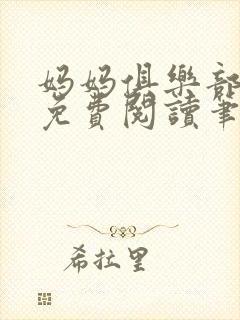 媽媽俱樂部
免費閱讀筆
希拉里